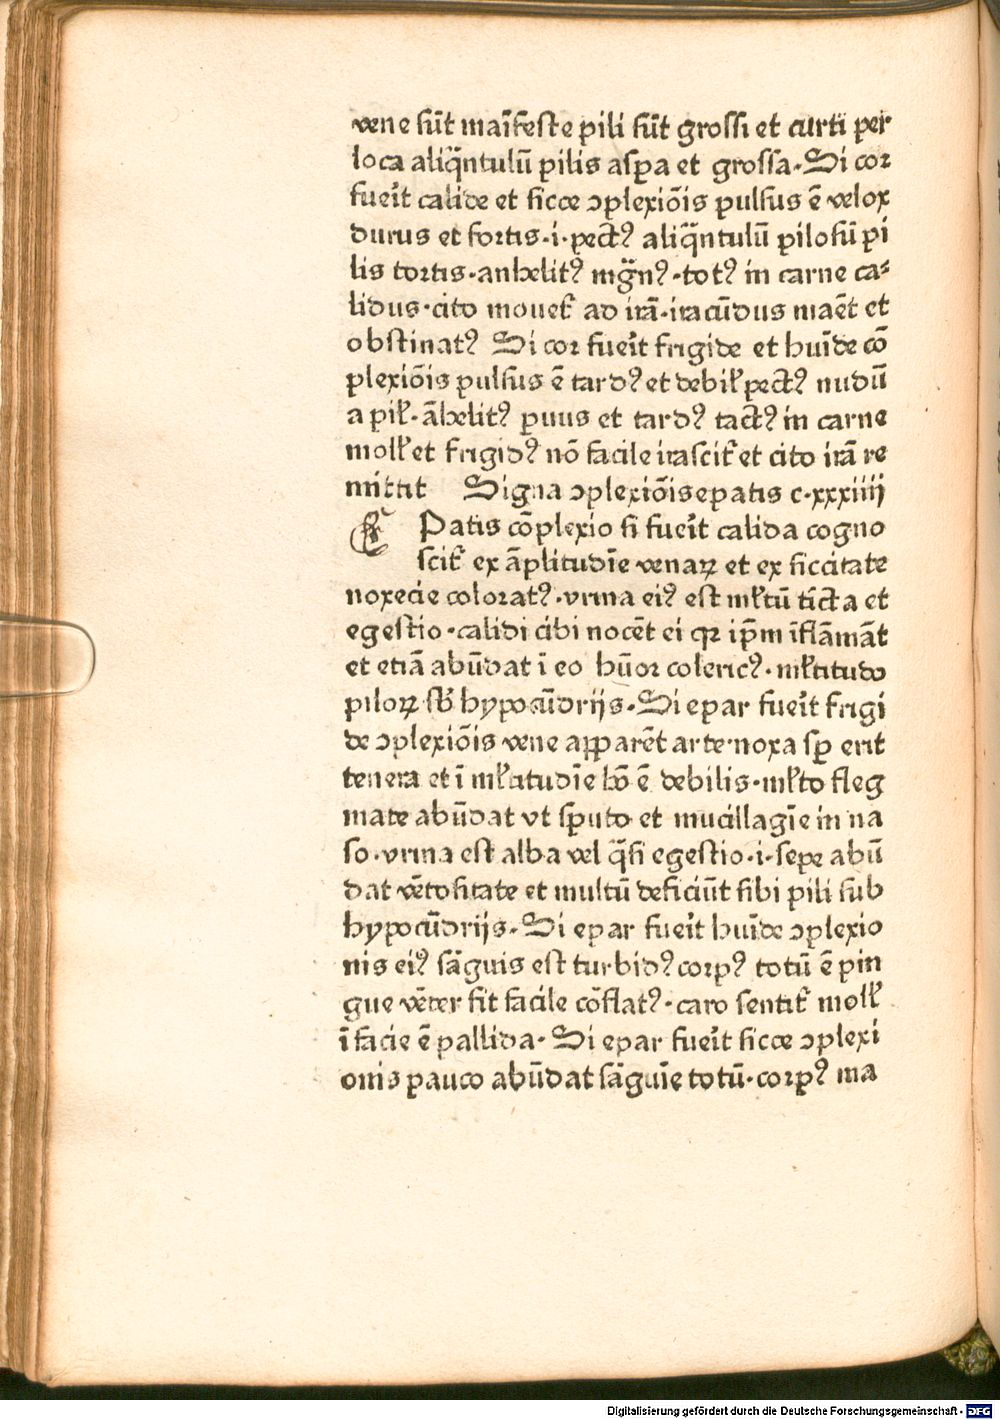 vene sūt maīfeste pili sūt grossi et curti per
loca aliq̄ntulū pilis asꝑa et grossa·Si cor
fuerīt calide et sicce ↄplexiōis pulsus ē velox
durus et fortis·i·pectꝰ aliq̄ntulū pilosū pi
lis tortis·anhelitꝰ mḡnꝰ·totꝰ in carne ca⸗
lidus·cito mouet᷑ ad irā·iracūdus maēt et
obstinatꝰ Si cor fueīt frigide et huīde cō
plexiōis pulsus ē tardꝰ et debil᷑ pectꝰ nudū
a pil᷑·āhelitꝰ ꝑuus et tardꝰ tactꝰ in carne
moll᷑ et frigidꝰ nō facile irascit᷑ et cito irā re
mittit Signa ↄplexiōis epatis c·xxxiiij
E Patis cōplexio si fueīt calida cogno
scit᷑ ex āplitudīe venaꝝ et ex siccitate
noxecie coloratꝰ·vrina eiꝰ est ml᷑tū tīcta et
egestio·calidi cibi nocēt ei qꝛ ip̄m īflāmāt
et etiā abūdat ī eo hūor colericꝰ·ml᷑titudo
piloꝝ sb᷑ hypocūdrijs·Si epar fueīt frigi
de ↄplexiōis vene apparēt arte·noxa sꝑ erit
tenera et ī ml᷑titudīe ē debilis·ml᷑to fleg
mate abūdat vt sputo et mucillagīe in na
so·vrina est alba vel q̄si egestio·i·sepe abū
dat vētositate et multū deficiūt sibi pili sub
hypocūdrijs·Si epar fueīt huīde ↄplexio
nis eiꝰ sāguis est turbidꝰ corpꝰ totū ē pin
gue vēter fit facile cōflatꝰ·caro sentit᷑ moll᷑
ī facie ē pallida·Si epar fueīt sicce ↄplexi
onis pauco abūdat sāguīe totū·corpꝰ ma
Digitalisierung gefördert durch die Deutsche Forschungsgemeinschaft - DFG